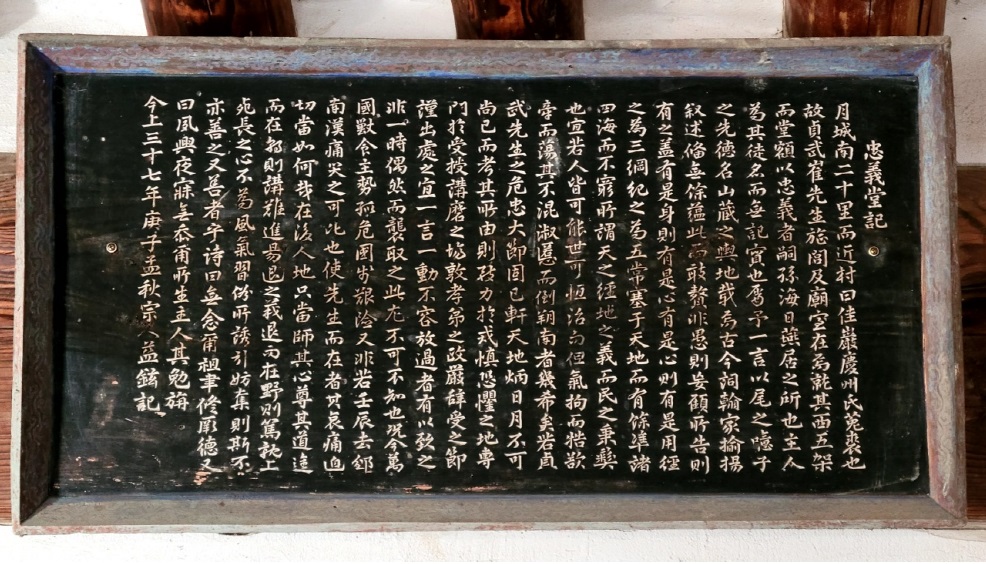 忠義堂記
月城南二十里而近村曰佳巖慶州氏菟裘也
故貞武崔先生旌閭及廟室在焉就其西五架
而堂額以忠義者嗣孫海日燕居之所也主人
為其徒名而無記實也屬予一言以尾之噫子
之先德名山藏之輿地載焉古今詞翰家揄揚
叙述備無餘蘊此而敢贅非愚則妄顧所告則
有之盖有是身則有是心有是心則有是用經
之為三綱紀之為五常塞于天地而有餘準諸
四海而不窮所謂天之經地之義而民之秉彜
也宜若人皆可能世可恒治而但氣拘而牿欲
牽而蕩其不混淑慝而倒朔南者幾希矣若貞
武先生之危忠大節固已軒天地炳日月不可
尚已而考其所由則務力於戒慎恐懼之地專
門於受授講磨之塲敦孝弟之政嚴辞受之節
謹出處之宜一言一動不容放過者有以致之
非一時偶然而襲取之此尤不可不知也况今萬
國獸令主勢孤危國步旅淪又非若壬辰去邠
南漢痛哭之可比也使先生而在者其哀痛迫
切當如何哉在後人地只當師其心尊其道進
而在朝則講難進易退之義退而在野則篤執上
死長之心不為風氣習俗所誘引妨奪則斯不
亦善之又善者乎诗曰無念爾祖聿修厥德又
曰夙興夜寐無忝爾所生主人其勉旃
今上三十七年庚子孟秋宗人益鉉記